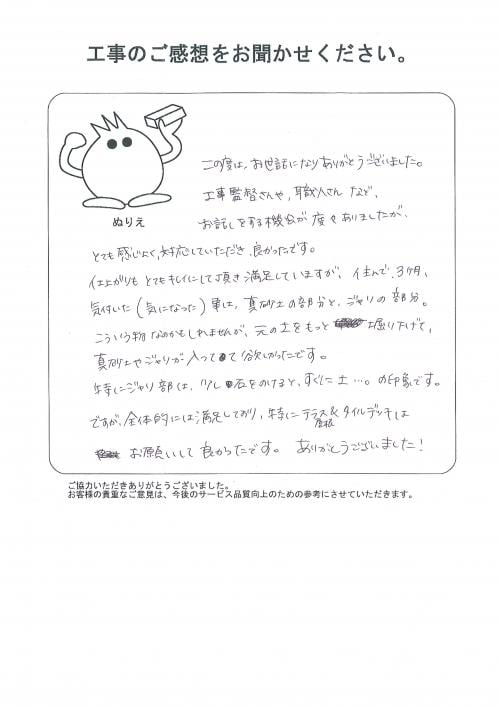 工事のご感想をお聞かせください。
ぬりえ
この度は、お世話になりありがとうございました。
工事監督さんや、職人さん など、
お話しをする機会が 度々ありましたが、
とても感じよく、対応していただき、良かったです。
仕上がりも とてもキレイにして頂き 満足していますが、住んで、3ヶ月、
気付いた(気になった)事は、真砂土の部分と、ジャリの部分。
こういう物なのかもしれませんが、元の土をもっと 堀り下げて、
真砂土やジャリが入って て欲しかったです。
特にジャリ部は、少し 石をのけると、すぐに土…。の印象です。
ですが、全体的には満足しており、特に テラス屋根&タイルデッキは
お願いして 良かったです。 ありがとうございました!
ご協力いただきありがとうございました。
お客様の貴重なご意見は、今後のサービス品質向上のための参考にさせていただきます。